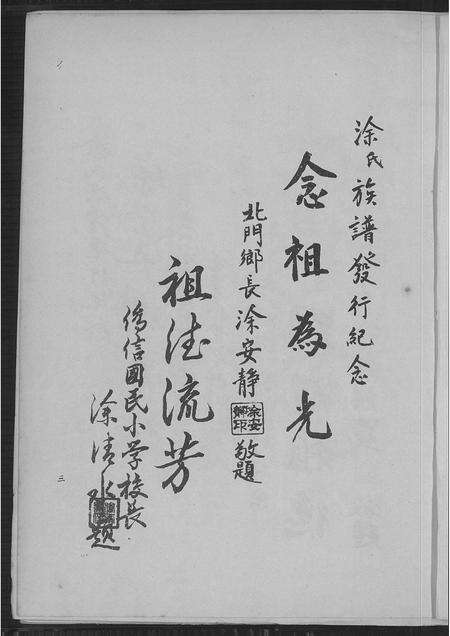 涂氏族譜發行紀念
念祖為光
北門鄉長涂安靜 敬題
祖德流芳
僑信國民小学校長
涂清水 題
三